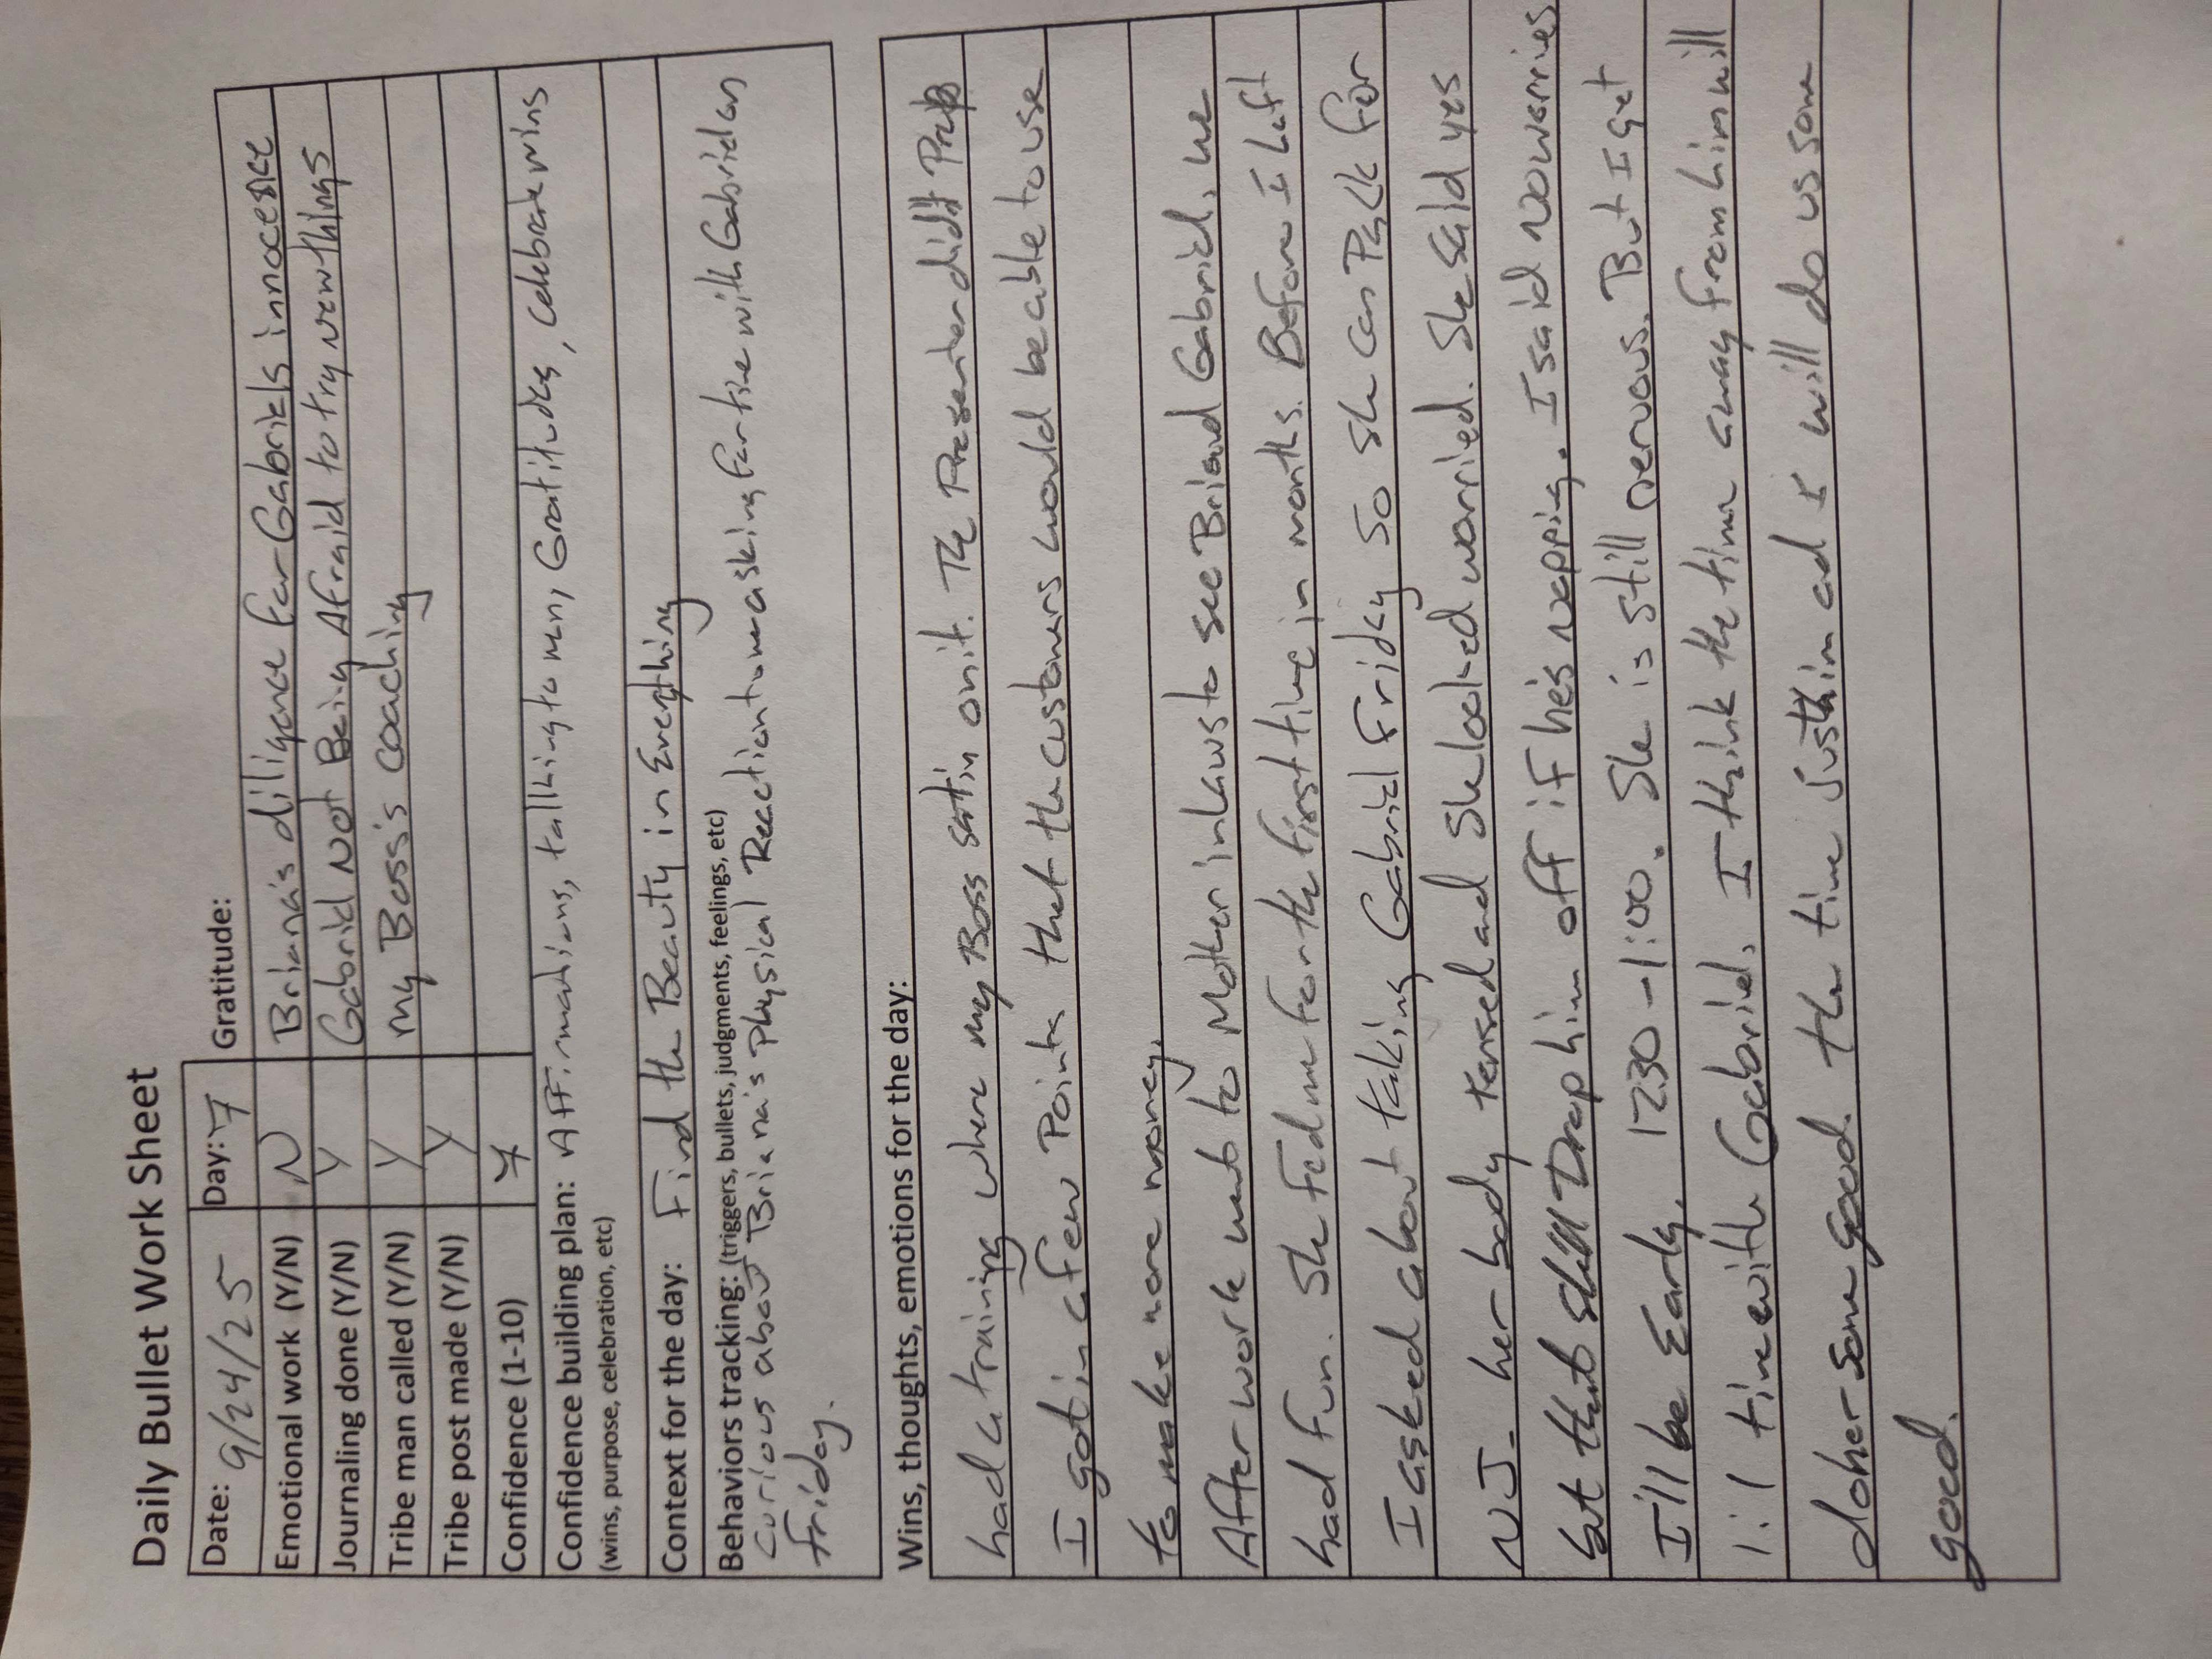 Daily Bullet Work Sheet
Date: 9/24/25 Day: 7 Gratitude:
Emotional work (Y/N) N Briana's diligence for Gabriels innocence
Journaling done (Y/N) Y Gabriel Not Being Afraid to try new things
Tribe man called (Y/N) Y my Boss's coaching
Tribe post made (Y/N) Y
Confidence (1-10) 7
Confidence building plan: Affirmations, talking to men, Gratitudes, celebrate wins
(wins, purpose, celebration, etc)
Context for the day: Find the Beauty in Everything
Behaviors tracking: (triggers, bullets, judgments, feelings, etc)
Curious about Briana's Physical Reaction to me asking for time with Gabriel on
Friday.
Wins, thoughts, emotions for the day:
had a training where my Boss sat in on it. The Presenter didn't Prep
I got in a few Points that the customers would be able to use
to make more money.
After work went to Mother in laws to see Bri and Gabriel, we
had fun. She Fed me for the first time in months. Before I left
I asked about taking Gabriel Friday so she can Pack for
NJ. her body tensed and she looked worried. She said yes
but that she'll Drop him off if he's napping. I said no worries
I'll be Early. 12:30 - 1:00. She is still nervous. But I get
1:1 time with Gabriel. I think the time away from him will
do her some good. the time Justin ad I will do us some
good.